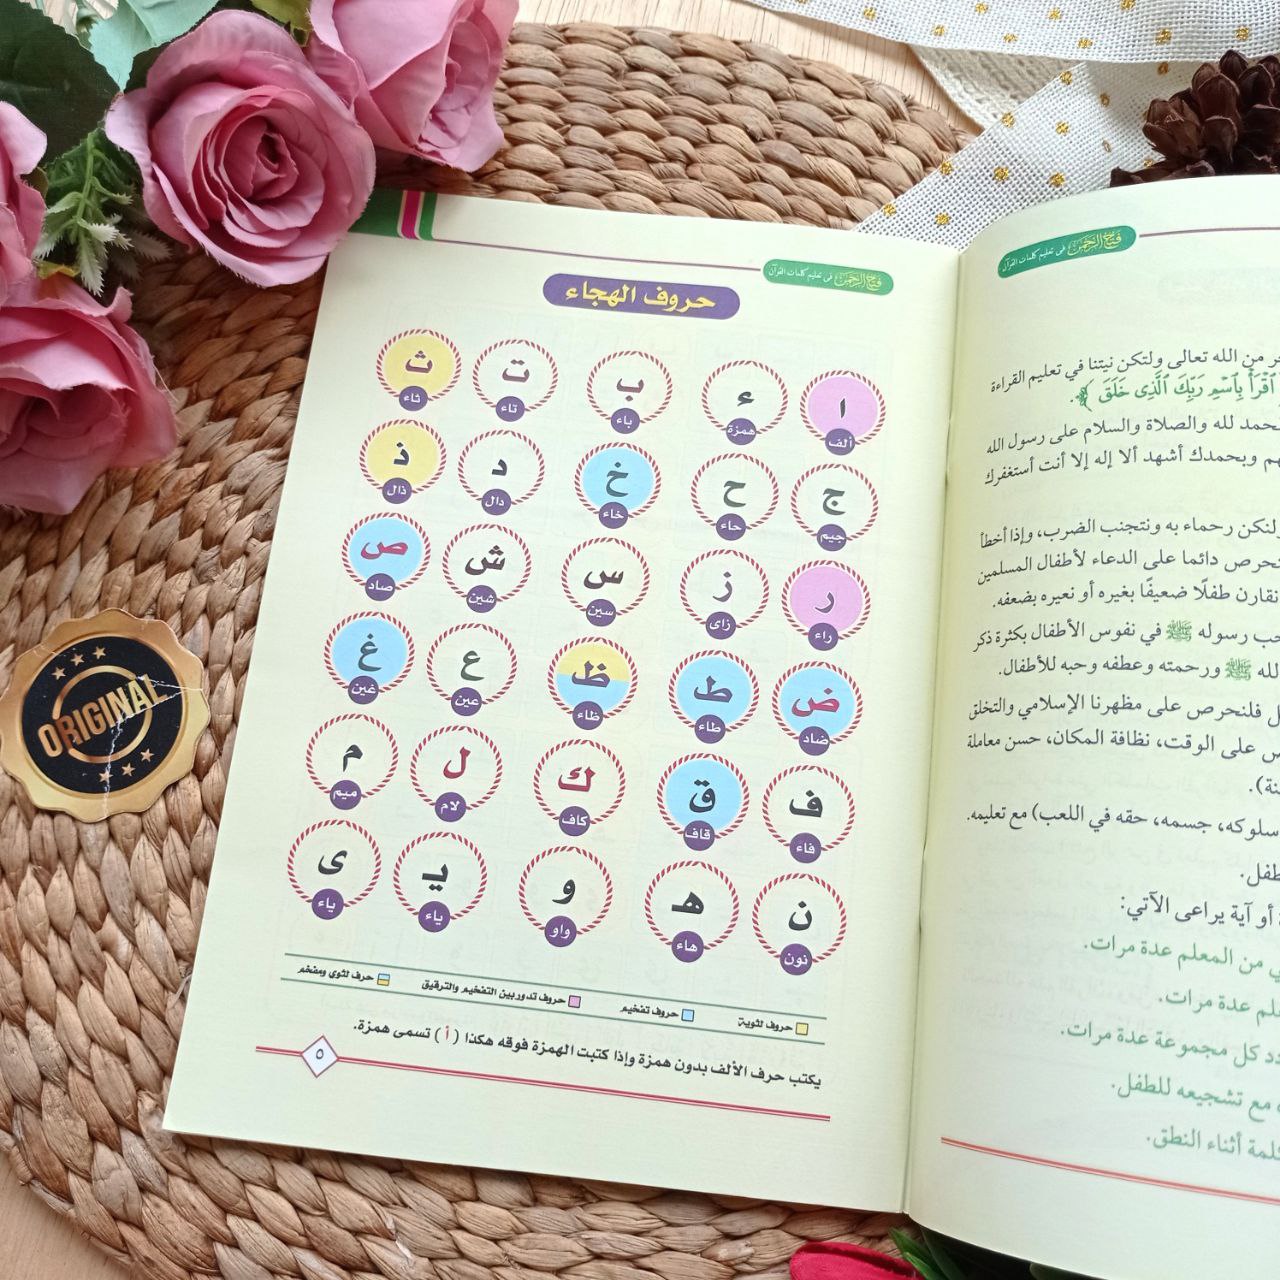 فتاح الرحمن في تعليم كلمات القرآن
حروف الهجاء
ا ء ب ت ث
ألف همزة باء تاء ثاء
ج ح خ د ذ
جيم حاء خاء دال ذال
ر ز س ش ص
راء زاى سين شين صاد
ض ط ظ ع غ
ضاد طاء ظاء عين غين
ف ق ك ل م
فاء قاف كاف لام ميم
ن هـ و يـ ى
نون هاء واو ياء ياء
حروف لثوية حروف تفخيم حروف تدور بين التفخيم والترقيق حرف لثوي ومفخم
يكتب حرف الألف بدون همزة وإذا كتبت الهمزة فوقه هكذا (أ) تسمى همزة.
٥
فتاح الرحمن في تعليم كلمات القرآن
من الله تعالى ولتكن نيتنا في تعليم القراءة
ٱقۡرَأۡ بِٱسۡمِ رَبِّكَ ٱلَّذِى خَلَقَ ﴾.
لحمد لله والصلاة والسلام على رسول الله
وبحمدك أشهد ألا إله إلا أنت أستغفرك
لنكن رحماء به ونتجنب الضرب، وإذا أخطأ
على الدعاء لأطفال المسلمين دائما
نقارن طفلًا ضعيفًا بغيره أو نعيره بضعفه.
رسوله ﷺ في نفوس الأطفال بكثرة ذكر
لله ﷺ ورحمته وعطفه وحبه للأطفال.
فلنحرص على مظهرنا الإسلامي والتخلق
على الوقت، نظافة المكان، حسن معاملة
سلوكه، جسمه، حقه في اللعب) مع تعليمه.
أو آية يراعى الآتي:
من المعلم عدة مرات.
عدة مرات.
كل مجموعة عدة مرات.
مع تشجيعه للطفل.
أثناء النطق.
ORIGINAL